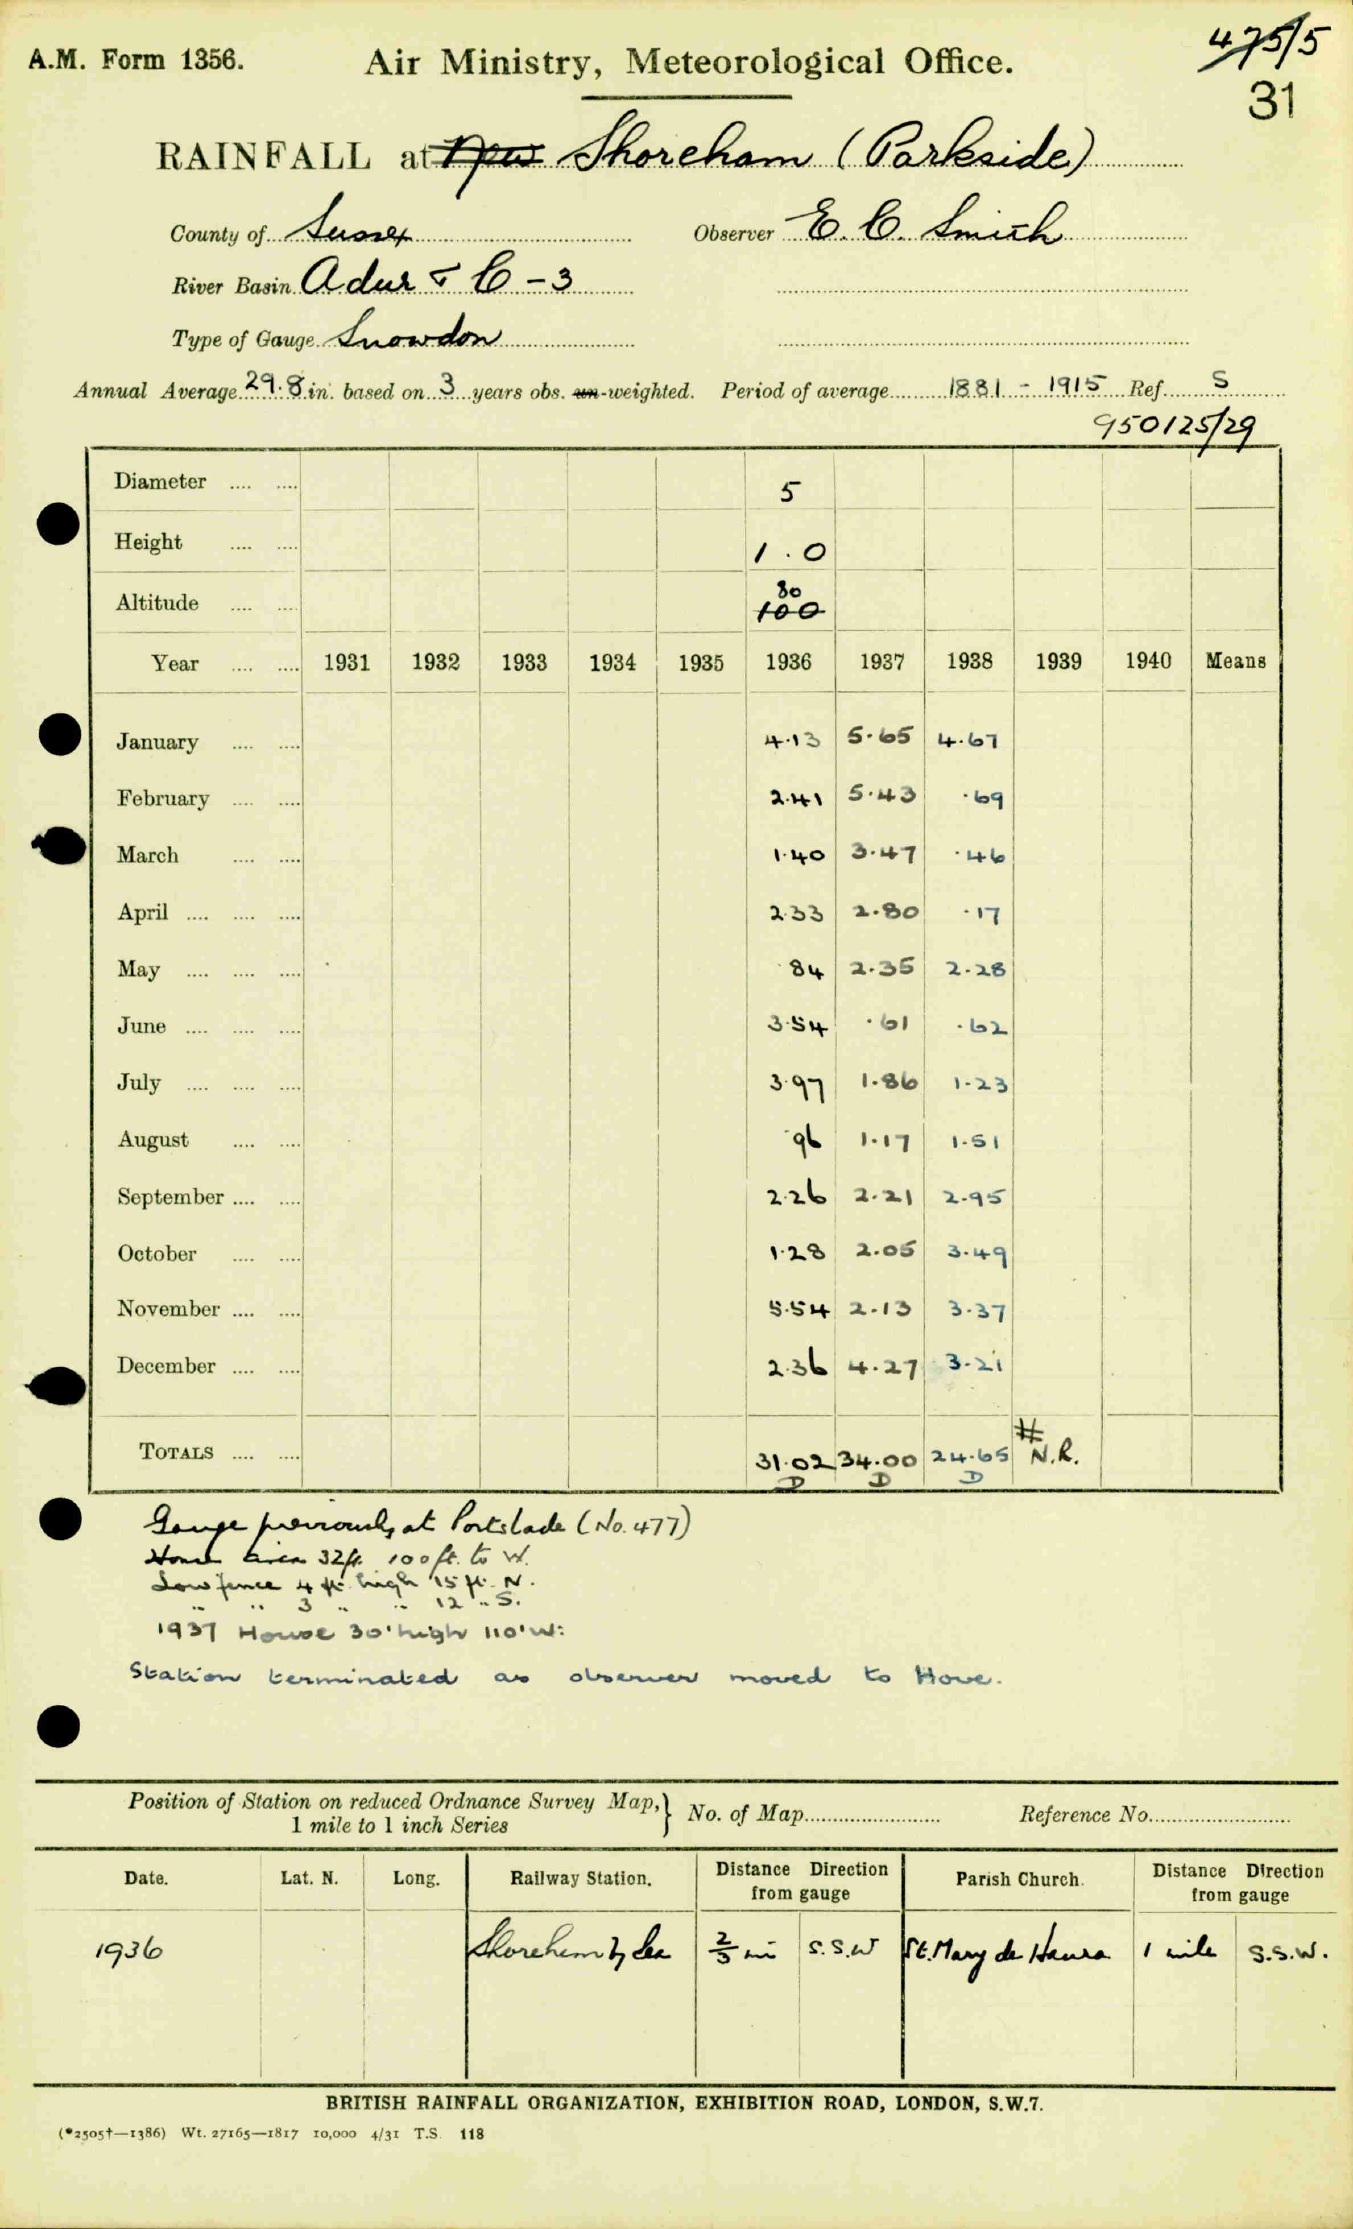 A.M. Form 1356. Air Ministry, Meteorological Office. 475/5
31
RAINFALL at New Shoreham (Parkside)
County of Sussex Observer E. C. Smith
River Basin Adur & C-3
Type of Gauge Snowdon
Annual Average 29.8 in. based on 3 years obs. un-weighted. Period of average 1881 - 1915 Ref. S
950125/29
Diameter .... .... 5
Height .... .... 1.0
80
Altitude .... .... 100
Year .... .... 1931 1932 1933 1934 1935 1936 1937 1938 1939 1940 Means
January .... .... 4.13 5.65 4.67
February .... .... 2.41 5.43 .69
March .... .... 1.40 3.47 .46
April .... .... .... 2.33 2.80 .17
May .... .... .... .84 2.35 2.28
June .... .... .... 3.54 .61 .62
July .... .... .... 3.97 1.86 1.23
August .... .... .96 1.17 1.51
September .... .... 2.26 2.21 2.95
October .... .... 1.28 2.05 3.49
November .... .... 5.54 2.13 3.37
December .... .... 2.36 4.27 3.21
TOTALS .... .... 31.02 34.00 24.65 # N.R.
D D D
Gauge previously at Portslade (No. 477)
32ft. 100ft. to W.
Low fence 4 ft. high 15 ft. N.
" " 3 " " 12 " S.
1937 House 30' high 110' W:
Station terminated as observer moved to Hove.
Position of Station on reduced Ordnance Survey Map, } No. of Map Reference No.
1 mile to 1 inch Series
Date. Lat. N. Long. Railway Station. Distance Direction from gauge Parish Church. Distance Direction from gauge
1936 Shoreham by Sea 2/3 mi S.S.W St. Mary de Haura 1 mile S.S.W.
BRITISH RAINFALL ORGANIZATION, EXHIBITION ROAD, LONDON, S.W.7.
(*2505†—1386) Wt. 27165—1817 10,000 4/31 T.S. 118